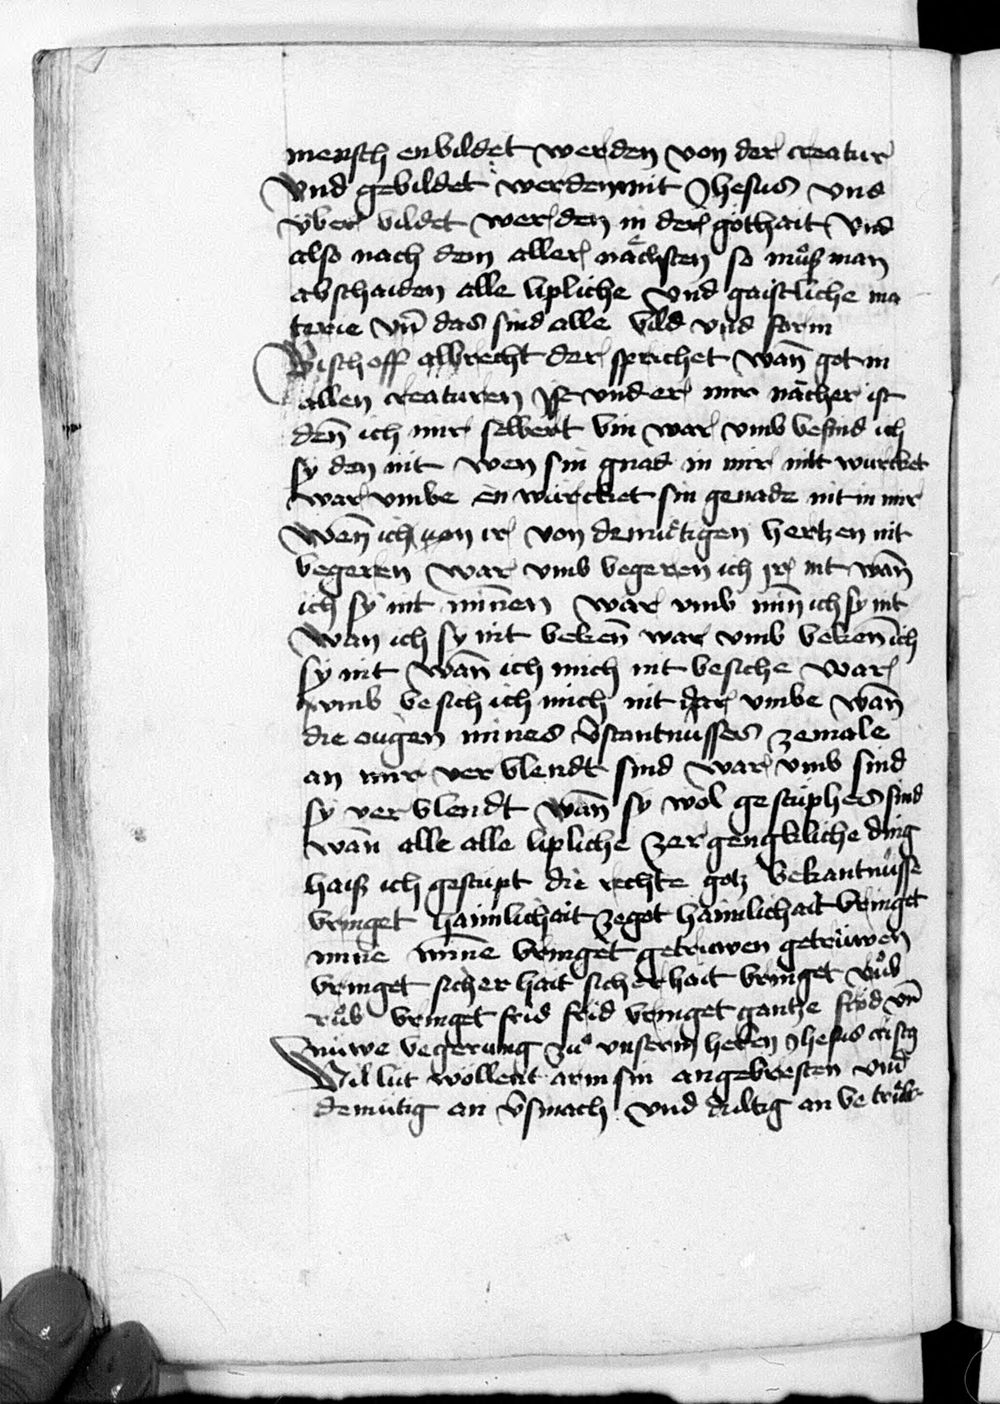 mensch enbildet werden von der creatur
Vnd gebildet werden mit Jhesus vnd
v̈ber bildet werden in der gothait Vnd
also nach dem aller nä̆chsten so mu̍ß man
abschaiden alle lipliche vnd gaistliche ma
terie vn̄ das sind alle bild vnd form
Bischoff albrecht der sprichet wan̄ got in
allen creaturen ist vnd er mir nächer ist
den̄ ich mir selbert bin war vmb befind ich
sy den nit wen sin gnad in mir nit würcket
war vmbe en würcket sin genade nit in mir
wen̄ ich von ir von demu̍tigen hertzen nit
begeren war vmb begeren ich ir nit wan̄
ich sy nit minnen war vmb min̄ ich sy nit
Wan ich sy nit beken̄ war vmb beken̄ ich
sy nit wan̄ ich mich nit besiche war
vmb besich ich mich nit dar vmbe wan̄
die ougen mines v̄stantnusses zemale
an mir ver blendt sind war vmb sind
sy ver blendt wan̄ sy wol gestuphes sind
wan̄ alle alle lipliche zergengkliche ding
haiß ich gestupt die rechte gotz bekantnüsse
bringet haimlichait ze got haimlichait bringet
mine min̄e bringet getruwen getrüwen
bringet sicherhait sicherhait bringet ru̍b
ru̍b bringet frid frid bringet gantze frö̈d vn̄
nuwe begerung zu̍ vnserm herren Jhesus cristy
Wil lut wöllent arm sin an gebresten vnd
demütig an v̄smach vnd dultig an be tru̍b-